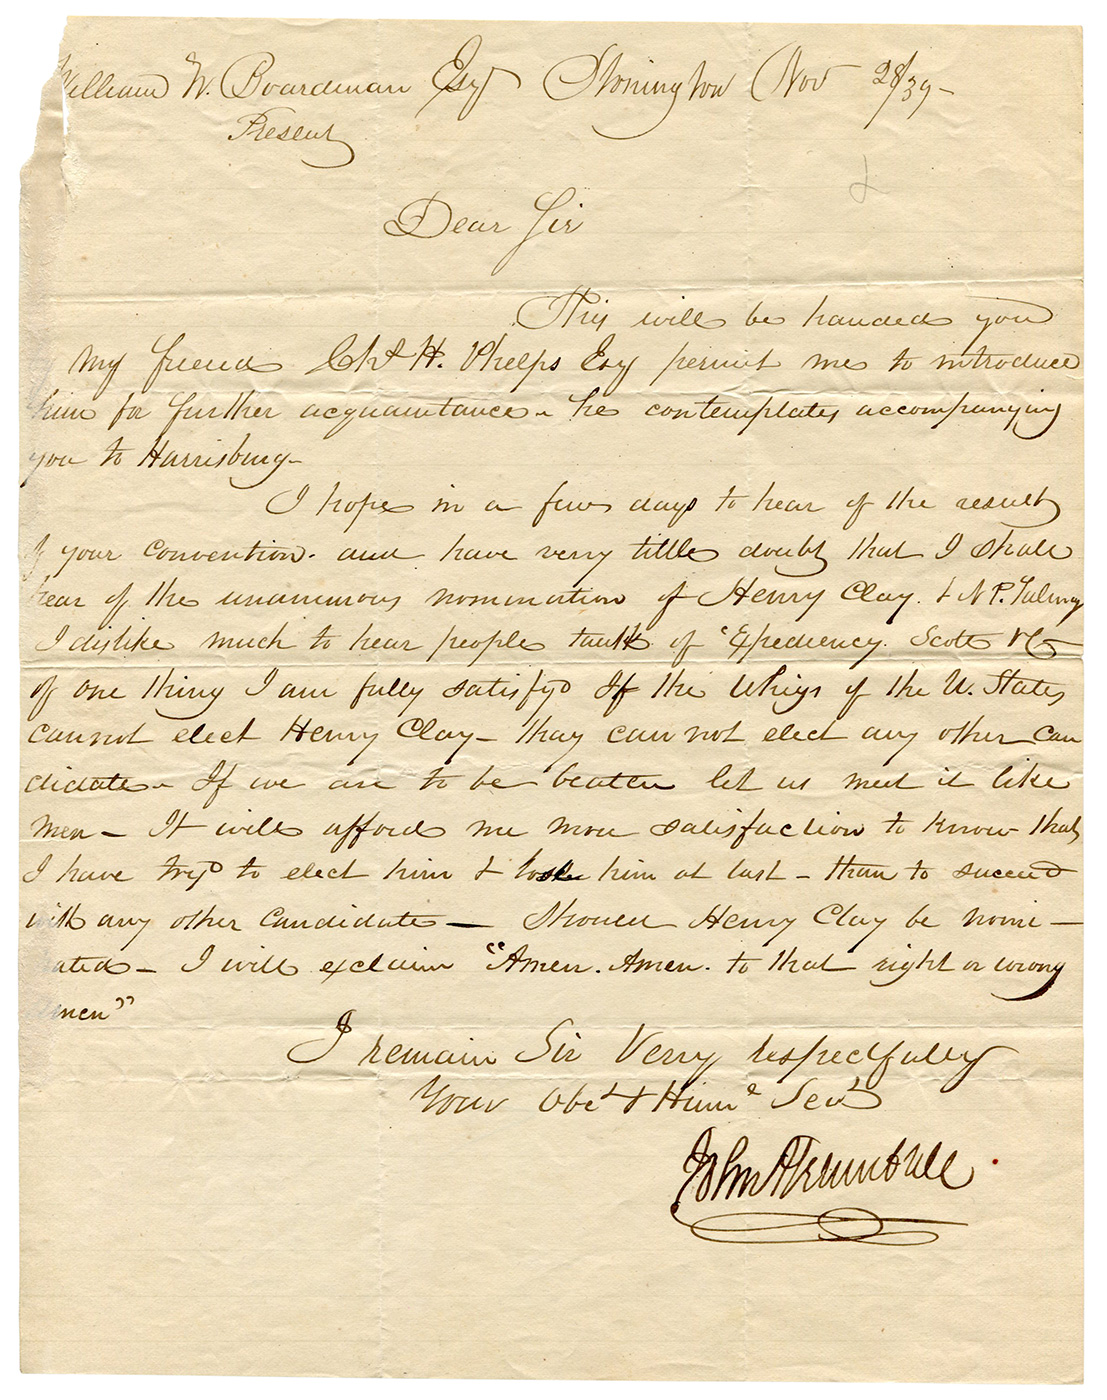 William W. Boardman Esqr Stonington Nov 28/39 -
Present
Dear Sir
This will be handed you
my friend Chs H. Phelps Esq permit me to introduce
him for further acquaintance - he contemplates accompanying
you to Harrisburg -
I hope in a few days to hear of the result
of your convention. and have verry little doubt that I shall
hear of the unanimous nomination of Henry Clay. & N P. Talmg
I dislike much to hear people taulk of "Expediency. Scott &C -
of one thing I am fully satisfyd If the Whigs of the U. States
cannot elect Henry Clay - thay can not elect any other can
didate - If we are to be beaten let us meet it like
men - It will afford me more satisfaction to know that
I have tryd to elect him & lose him at last - than to succeed
with any other candidate — Should Henry Clay be nomi -
nated - I will exclaim "Amen. Amen. to that right or wrong
amen"
I remain Sir Verry respectfully
Your Obet & Humle Sevt
John F Trumbull